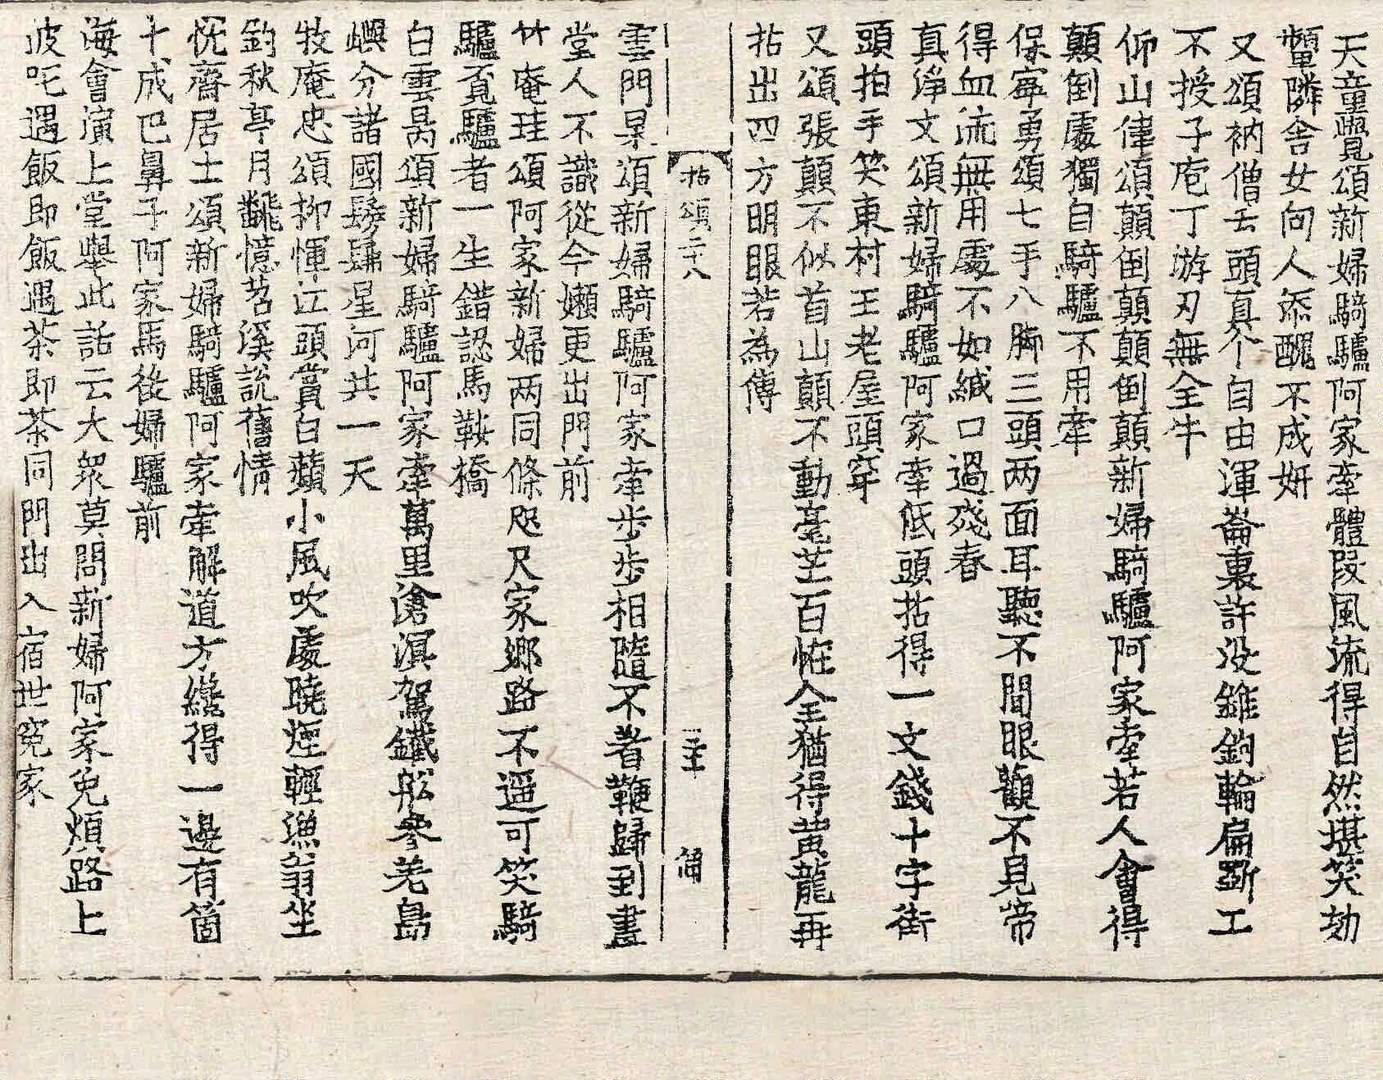 天童覺頌新婦騎驢阿家牽體段風流得自然堪笑効
顰隣舎女向人添醜不成妍
又頌衲僧去頭真个自由渾崙裏許没錐鉤輪扁斲工
不授子庖丁游刃無全牛
仰山偉頌顛倒顛顛倒顛新婦騎驢阿家牽若人會得
顛倒處獨自騎驢不用牽
保寧勇頌七手八脚三頭两面耳聽不聞眼觀不見苦
得血流無用處不如緘口過殘春
真淨文頌新婦騎驢阿家牽低頭拈得一文錢十字街
頭拍手笑東村王老屋頭穿
又頌張顛不似首山顛不動毫芒百怪全猶得黄龍再
拈出四方明眼若為傳
拈頌二十八
三十
雲門杲頌新婦騎驢阿家牽步歩相隨不著鞭歸到畫
堂人不識從今嬾更出門前
竹庵珪頌阿家新婦两同條咫尺家鄉路不遥可笑騎
驢覔驢者一生錯認馬鞍橋
白雲昺頌新婦騎驢阿家牽萬里滄溟駕鐵舩參差島
嶼分諸國髣髴星河共一天
牧庵忠頌柳惲江頭賞白蘋小風吹處曉煙輕漁翁坐
釣秋亭月憶苕溪說舊情
悦齋居士頌新婦騎驢阿家牽解道方纔得一邊有箇
十成巴鼻子阿家馬後婦驢前
海會演上堂舉此話云大衆莫問新婦阿家免煩路上
波吒遇飯即飯遇茶即茶同門出入宿世寃家